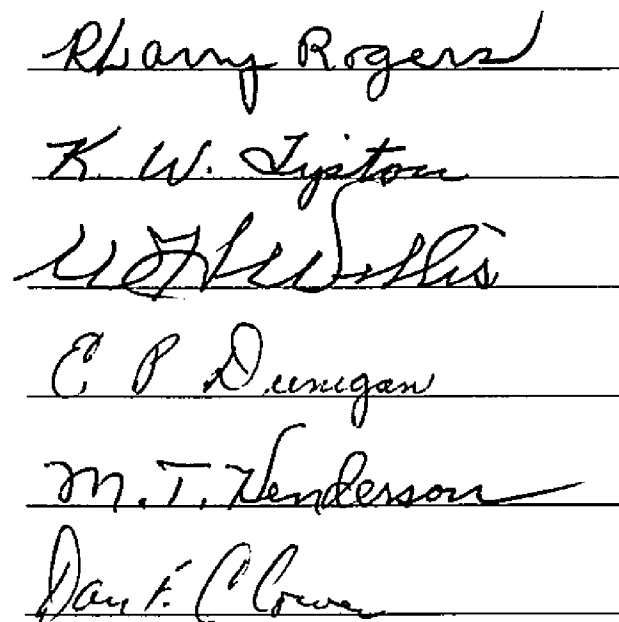 R Larry Rogers
K. W. Tipton
Willis
E P Dunigan
M. T. Henderson
Dan F.